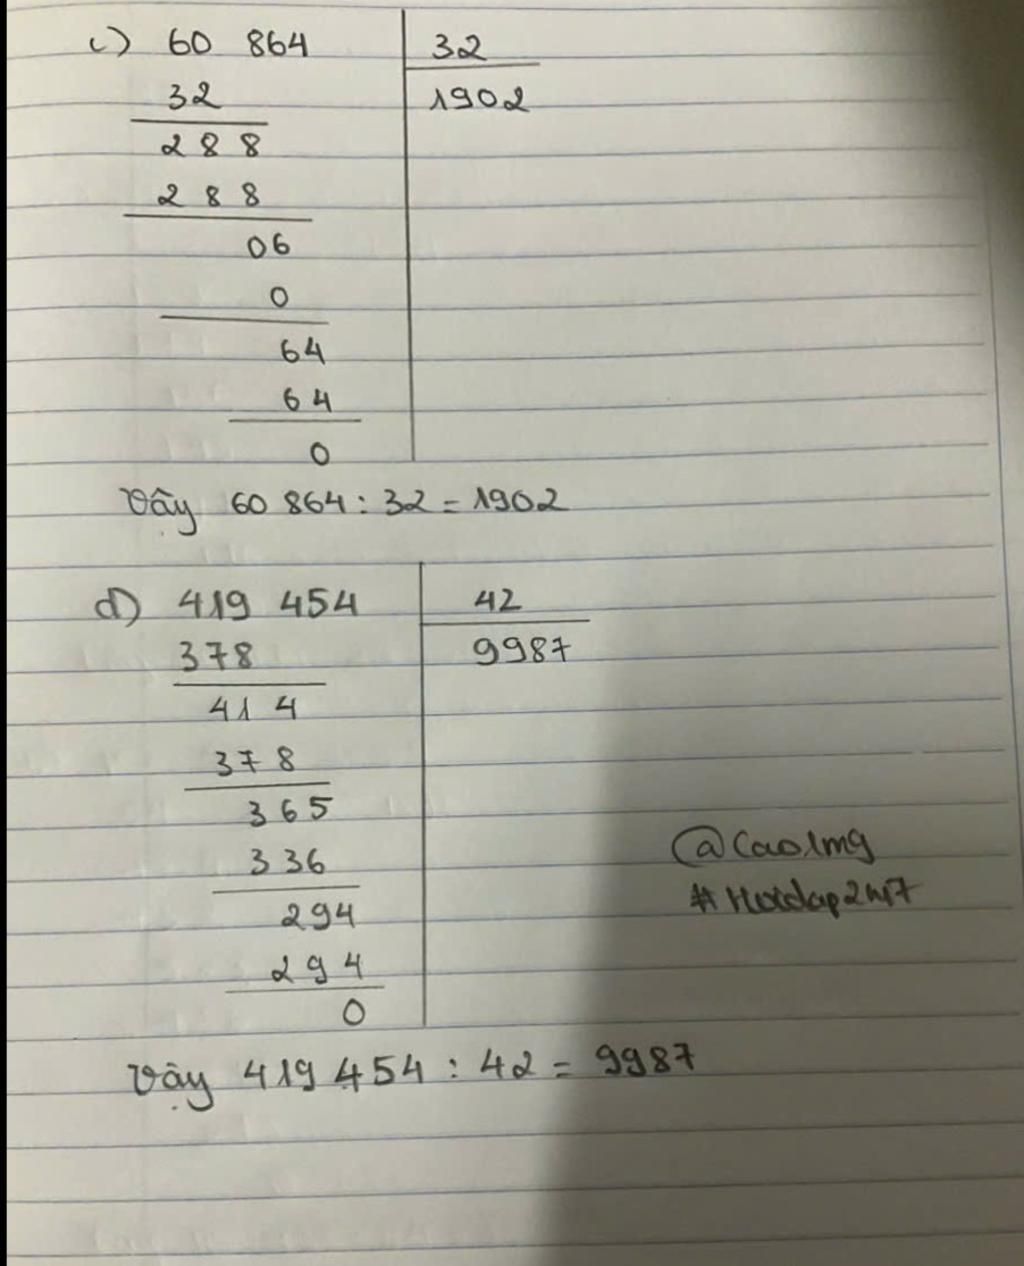 c) 60 864 32
32 1902
288
288
06
0
64
64
0
Vậy 60 864 : 32 = 1902
d) 419 454 42
378 9987
414
378
365
336
294
294
0
Vậy 419 454 : 42 = 9987